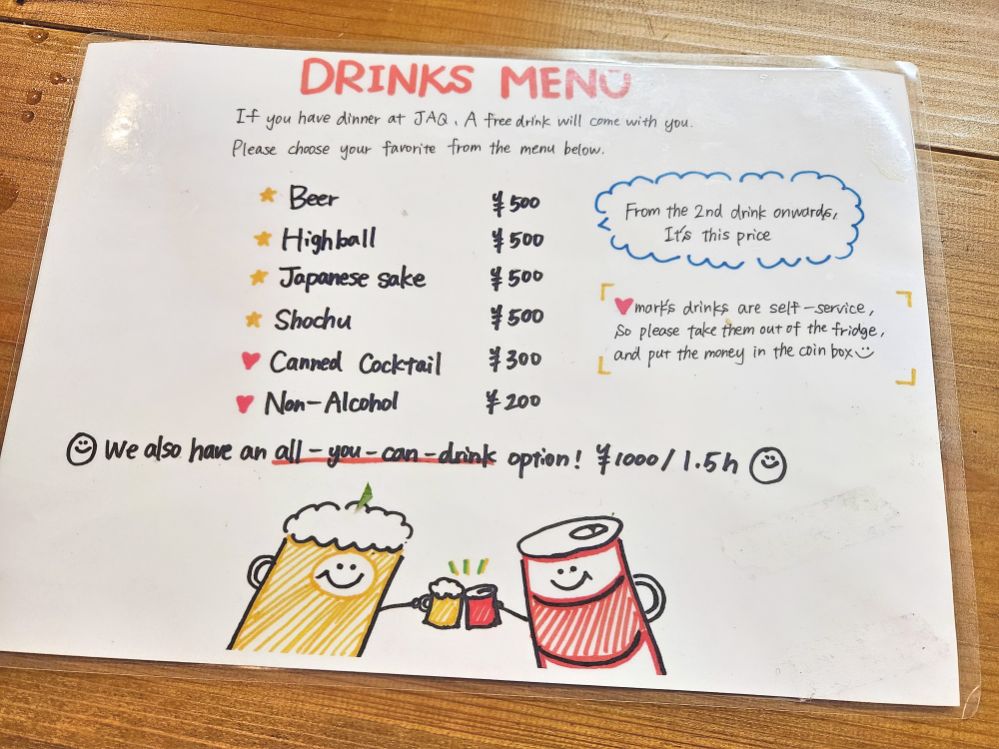 DRINKS MENU
If you have dinner at JAQ、A free drink will come with you.
Please choose your favorite from the menu below.
★ Beer ¥500
★ Highball ¥500
★ Japanese sake ¥500
★ Shochu ¥500
♥ Canned Cocktail ¥300
♥ Non-Alcohol ¥200
From the 2nd drink onwards,
It's this price
♥mark's drinks are self-service,
So please take them out of the fridge,
and put the money in the coin box
We also have an all-you-can-drink option! ¥1000/1.5h